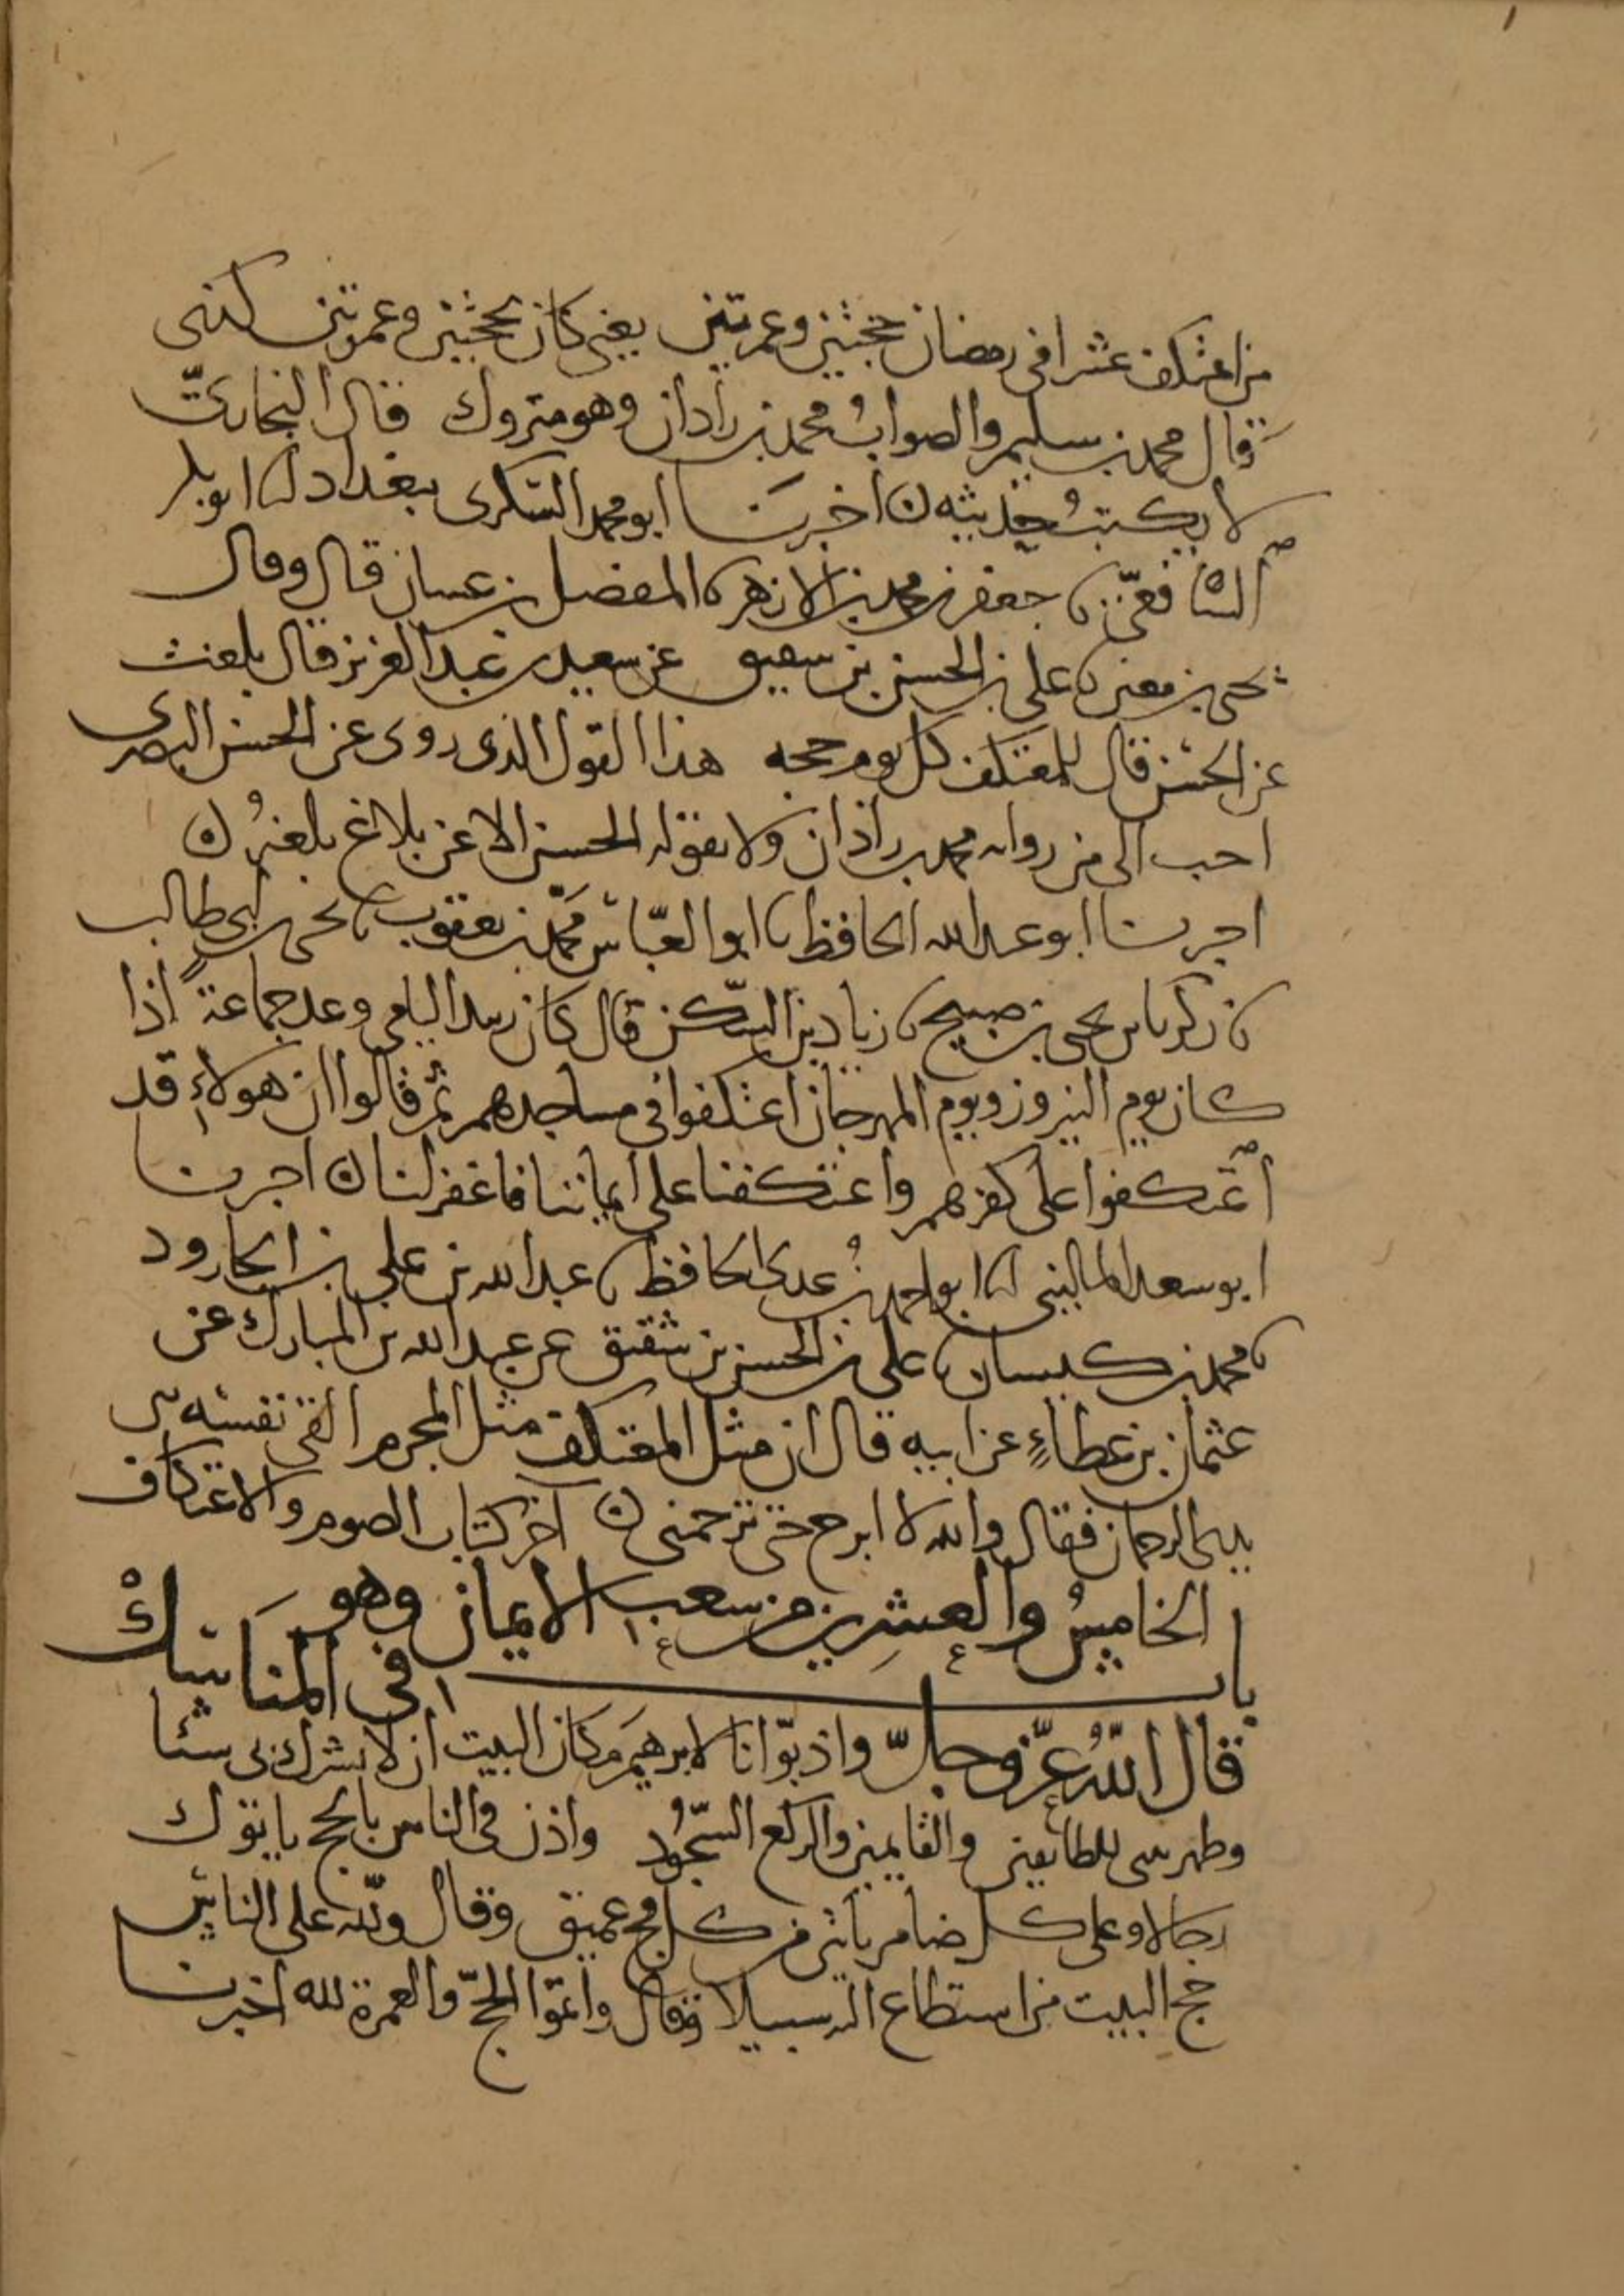 من اعتكف عشرا فى رمضان بحجتين وعمرتين يعنى كان كحجتين وعمرتين كذى
قال محمد بن سليم والصواب محمد بن زاذان وهو متروك قال البخارى
لا يكتب حديثه ه اخبرنا ابو محمد السكرى ببغداد انا ابو بكر
الشافعى نا جعفر بن محمد بن الازهر نا المفضل بن غسان قال وقال
يحى بن معين نا على بن الحسن بن شقيق عن سعيد بن عبد العزيز قال بلغت
عن الحسن قال للمعتكف كل يوم حجه هذا القول الذى روى عن الحسن البصرى
احب الى من روايه محمد بن زاذان ولا يقوله الحسن الا عن بلاغ بلغه ه
اخبرنا ابو عبد الله الحافظ نا ابو العباس محمد بن يعقوب نا يحى بن ابى طالب
نا زكريا بن يحى بن صبيح نا زياد بن السكن قال كان زبيد اليامى وعد جماعة اذا
كان يوم النيروز ويوم المهرجان اعتكفوا فى مساجدهم ثم قالوا ان هولاء قد
اعتكفوا على كفرهم واعتكفنا على ايماننا فاغفر لنا ه اخبرنا
ابو سعد المالينى انا ابو احمد بن عدى الحافظ نا عبد الله بن على بن الجارود
نا محمد بن كيسان نا على بن الحسن بن شقيق عن عبد الله بن المبارك عن
عثمان بن عطاء عن ابيه قال ان مثل المعتكف مثل المحرم القى نفسه بين
يدى الرحمان فقال والله لا ابرح حتى ترحمنى ه آخر كتاب الصوم والاعتكاف
الخامس والعشرين من شعب الايمان وهو
باب فى المناسك
قال الله عز وجل واذ بوانا لابرهيم مكان البيت ان لا تشرك بى شئا
وطهر بيتى للطائفين والقايمين والركع السجود واذن فى الناس بالحج ياتوك
رجالا وعلى كل ضامر ياتين من كل فج عميق وقال ولله على الناس
حج البيت من استطاع اليه سبيلا وقال واتموا الحج والعمرة لله اخبرنا